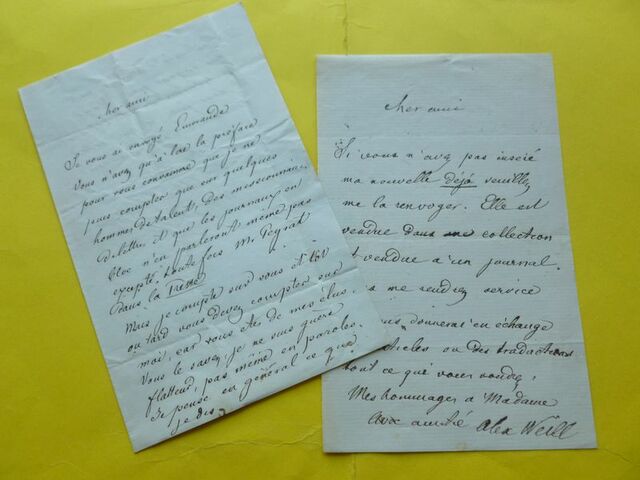 cher ami
Je vous ai envoyé Emeraude
vous n'avez qu'à lire la préface
pour vous convaincre que je ne
puis compter que sur quelques
hommes de talent, des missionnaires
de lettre, et que les journaux en
bloc n'en parleront même pas
excepté toute fois M. Peyrat
dans la Presse
Mais je compte sur vous et tôt
ou tard vous devez compter sur
moi, car vous êtes de mes élus.
Vous le savez, je ne suis guère
flatteur, pas même en paroles.
Je pense en général ce que
je dis
Cher ami
Si vous n'avez pas inséré
ma nouvelle déjà veuillez
me la renvoyer. Elle est
vendue dans une collection
et vendue à un journal.
me rendrez service
vous donnerai en échange
articles ou des traductions
tout ce que vous voudrez,
Mes hommages à Madame
aux amitié Alex Weill